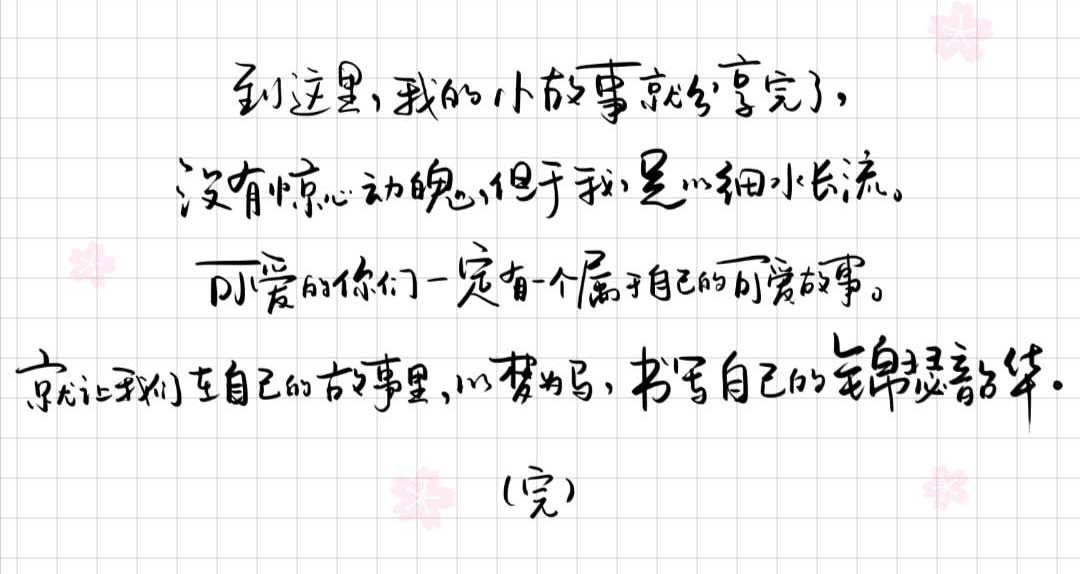 到这里,我的小故事就分享完了,
没有惊心动魄,但于我,足以细水长流。
可爱的你们一定有一个属于自己的可爱故事。
就让我们在自己的故事里,以梦为马,书写自己的锦瑟韶华。
(完)